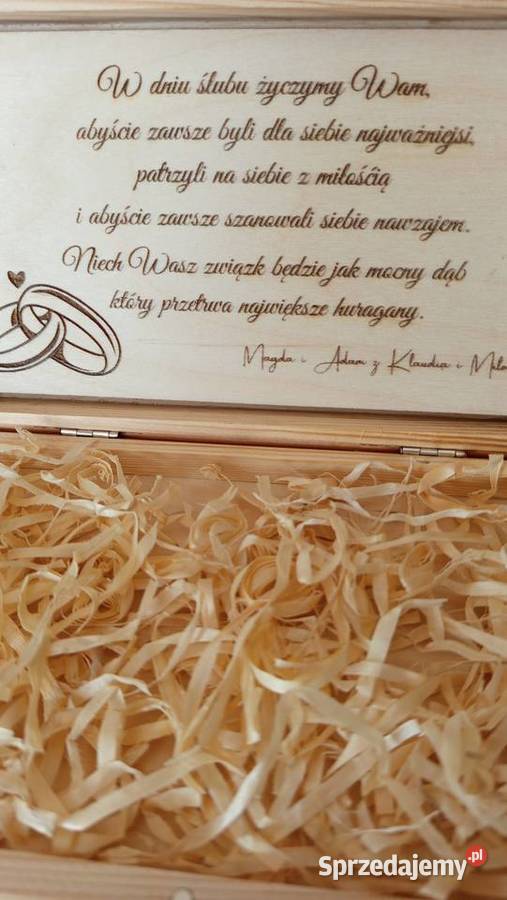 W dniu ślubu życzymy Wam,
abyście zawsze byli dla siebie najważniejsi,
patrzyli na siebie z miłośćią
i abyście zawsze szanowali siebie nawzajem.
Niech Wasz związk będzie jak mocny dąb
który przetrwa największe huragany.
Magda i Adam z Klaudia i
Sprzedajemy.pl